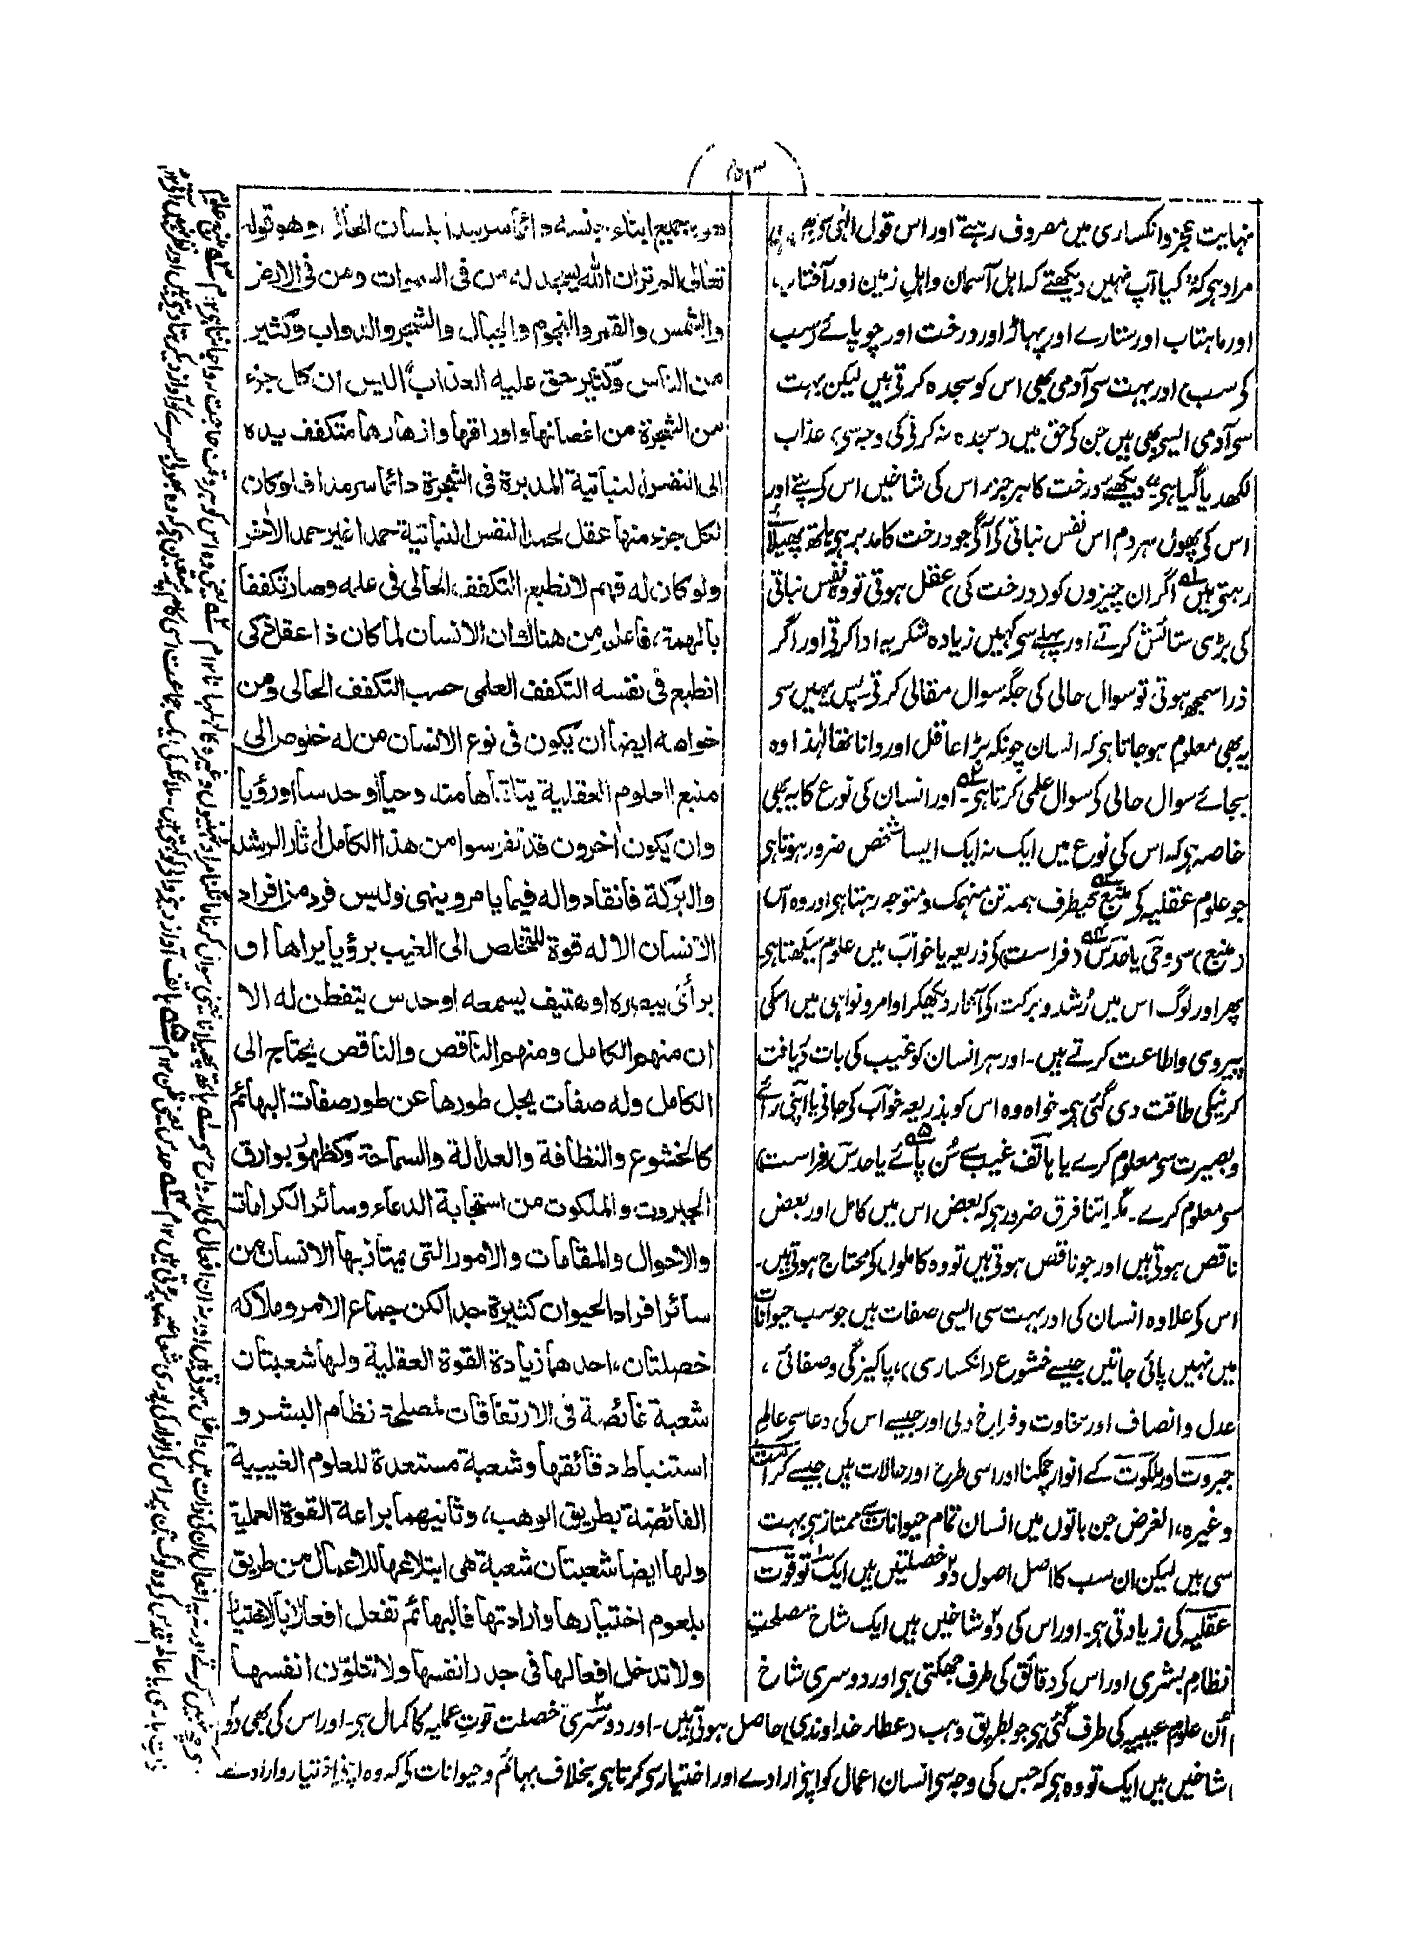 ۱۵۳
نہایت عجز وانکساری میں مصروف رہتے اور اس قول الٰہی سے یہی
مراد ہی کہ "کیا آپ نہیں دیکھتے کہ اہل آسمان واہلِ زمین اور آفتاب،
اور ماہتاب اور ستارے اور پہاڑ اور درخت اور چوپائے (سب
کے سب) اور بہت سی آدمی بھی اس کو سجدہ کرتی ہیں لیکن بہت
سی آدمی ایسی بھی ہیں جن کی حق میں (سجدہ نہ کرنی کی وجہ سی) عذاب
لکھدیا گیا ہی" دیکھئے درخت کا ہر جزء اس کی شاخیں اس کی پتے اور
اس کی پھول ہر دم اس نفس نباتی کی آگی جو درخت کا مدبر ہی ہاتھ پھیلائے
رہتی ہیں اگر ان چیزوں کو (درخت کی) عقل ہوتی تو وہ نفس نباتی
کی بڑی ستائش کرتے اور پہلے سی کہیں زیادہ شکریہ ادا کرتی اور اگر
ذرا سمجھ ہوتی تو سوال حالی کی جگہ سوال مقالی کرتی پس یہیں سی
یہ بھی معلوم ہو جاتا ہی کہ انسان چونکہ بڑا عاقل اور دانا تھا لہٰذا وہ
بجائے سوال حالی کی سوال علمی کرتا ہی۔ اور انسان کی نوع کا یہ بھی
خاصہ ہی کہ اس کی نوع میں ایک نہ ایک ایسا شخص ضرور ہوتا ہی
جو علوم عقلیہ کی منبع کیطرف ہمہ تن منہمک ومتوجہ رہتا ہی اور وہ اس
(منبع) سی وحی یا حدس (فراست) کی ذریعہ یا خواب میں علوم سیکھتا ہی
پھر اور لوگ اس میں رُشد وبرکت کی آثار دیکھکر اوامر ونواہی میں اسکی
پیروی واطاعت کرتے ہیں۔ اور ہر انسان کو غیب کی بات دریافت
کرنیکی طاقت دی گئی ہی۔ خواہ وہ اس کو بذریعہ خواب کی جانی یا اپنی رائے
وبصیرت سی معلوم کرے یا ہاتف غیب سے سُن پائے یا حدس (فراست)
سی معلوم کرے۔ مگر اتنا فرق ضرور ہی کہ بعض اس میں کامل اور بعض
ناقص ہوتی ہیں اور جو ناقص ہوتی ہیں تو وہ کاملوں کی محتاج ہوتی ہیں۔
اس کی علاوہ انسان کی اور بہت سی ایسی صفات ہیں جو سب حیوانات
میں نہیں پائی جاتیں جیسے خشوع (انکساری)، پاکیزگی وصفائی،
عدل وانصاف اور سخاوت وفراخ دلی اور جیسے اس کی دعا سی عالمِ
جبروت اور ملکوت کے انوار چمکنا اور اسی طرح اور حالات ہیں جیسے کرامت
وغیرہ، الغرض جن باتوں میں انسان تمام حیوانات سے ممتاز ہی بہت
سی ہیں لیکن ان سب کا اصل اصول دو خصلتیں ہیں ایک تو قوت
عقلیہ کی زیادتی ہی۔ اور اس کی دو شاخیں ہیں ایک شاخ مصلحتِ
نظامِ بشری اور اس کی دقائق کی طرف جھکتی ہی اور دوسری شاخ
دو بجميع ابناء نسه دائما سرمدا بلسان الحال، وهو قوله
تعالى الم تر ان الله يسجد له من فى السموات ومن فى الارض
والشمس والقمر والنجوم والجبال والشجر والدواب وكثير
من الناس وكثير حق عليه العذاب، اليس ان كل جزء
من الشجرة من اغصانها واوراقها وازهارها متكفف يده
الى النفس النباتية المدبرة فى الشجرة دائما سرمدا فلو كان
لكل جزء منها عقل لحمد النفس النباتية حمدا غير حمد الاخر
ولو كان له فهم لانطبع التكفف الحالى فى علمه وصار تكففا
بالهمة، فاعلم من هنالك ان الانسان لما كان ذا عقل ذكى
انطبع فى نفسه التكفف العلمى حسب التكفف الحالى ومن
خواصه ايضا ان يكون فى نوع الانسان من له خلوص الى
منبع العلوم العقلية يتلقاها منه وحيا او حدسا او رؤيا
وان يكون اخرون قد تفرسوا من هذا الكامل اثار الرشد
والبركة فانقادوا له فيما يامر وينهى وليس فرد من افراد
الانسان الا له قوة للتخلص الى الغيب برؤيا يراها او
برأى يبصره او هتيف يسمعه او حدس يتفطن له الا
ان منهم الكامل ومنهم الناقص والناقص يحتاج الى
الكامل وله صفات يجل طورها عن طور صفات البهائم
كالخشوع والنظافة والعدالة والسماحة وكظهور بوارق
الجبروت والملكوت من استجابة الدعاء وسائر الكرامات
والاحوال والمقامات والامور التى يمتاز بها الانسان من
سائر افراد الحيوان كثيرة جدا لكن جماع الامر وملاكه
خصلتان، احدهما زيادة القوة العقلية ولها شعبتان
شعبة غائصة فى الارتفاقات لمصلحة نظام البشر و
استنباط دقائقها وشعبة مستعدة للعلوم الغيبية
الفائضة بطريق الوهب، وثانيهما براعة القوة العملية
ولها ايضا شعبتان شعبة هى ابتلاعها للاعمال من طريق
بلعوم اختيارها وارادتها فالبهائم تفعل افعالا بالاختيار
ولا تدخل افعالها فى جدر انفسها ولا تتلون انفسها
اُن علوم غیبیہ کی طرف گئی ہی جو بطریق وہب (عطار خداوندی) حاصل ہوتی ہیں۔ اور دوسری خصلت قوتِ عملیہ کا کمال ہی۔ اور اس کی بھی دو
شاخیں ہیں ایک تو وہ ہی کہ جس کی وجہ سی انسان اعمال کو اپنی ارادے اور اختیار سی کرتا ہی بخلاف بہائم وحیوانات کی کہ وہ اپنی اختیار وارادے سے